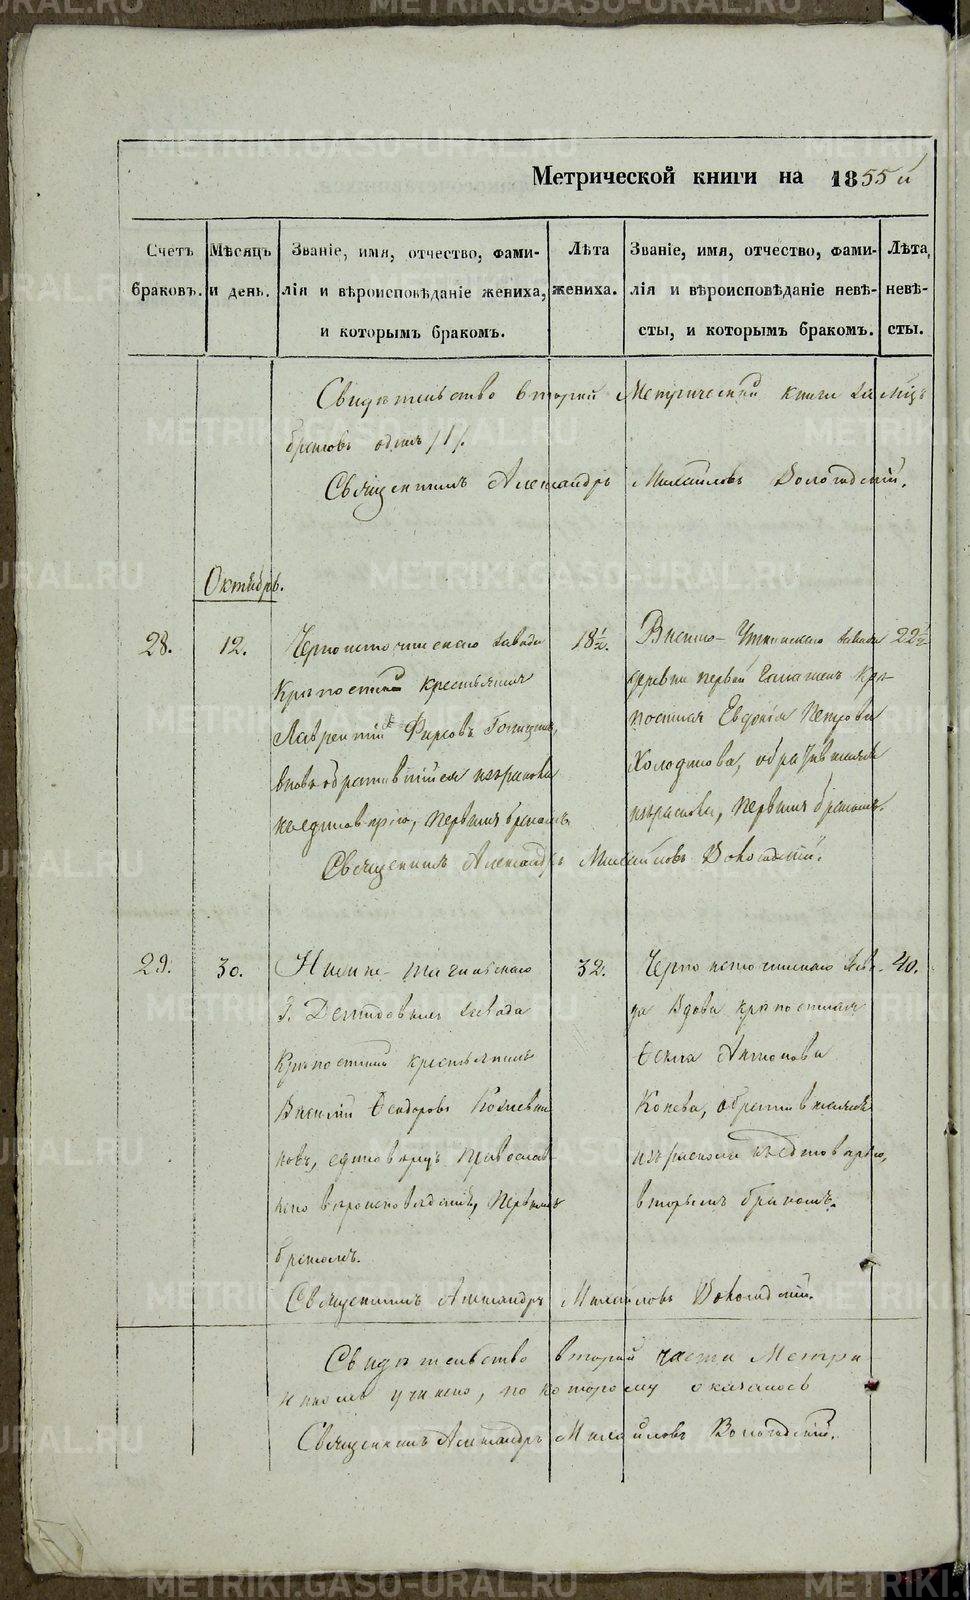 Метрической книги на 1855й
Счетъ браковъ.
Мѣсяцъ и день.
Званіе, имя, отчество, фами-
лія и вѣроисповѣданіе жениха,
и которымъ бракомъ.
Лѣта жениха.
Званіе, имя, отчество, фами-
лія и вѣроисповѣданіе невѣ-
сты, и которымъ бракомъ.
Лѣта, невѣ-
сты.
Свидѣтельство второй Метрической книги
браковъ одинъ /1/.
Священникъ Александръ Михайловъ Вологодскій.
Октябрь.
28.
12.
Черноисточинскаго завода
Крѣпостной крестьянинъ
Лаврентій Фирсовъ
вновь обратившійся изъ раскола
къ единовѣрію, первымъ бракомъ
18½.
Висимо-Уткинскаго завода
деревни первой Галашекъ Крѣ-
постная Евдокія Петрова
Холодилова, обратившаяся
изъ раскола, первымъ бракомъ.
22½
Священникъ Александръ Михайловъ Вологодскій.
29.
30.
Нижне-тагильскаго
Г. Демидовыхъ завода
Крѣпостный крестьянинъ
Василій Ѳеодоровъ Кожевни
ковъ, единовѣрц. Православ-
наго вѣроисповѣданія, первымъ
бракомъ.
32.
Черноисточинскаго заво-
да Вдова крѣпостная
Ѳекла Антонова
Конева, обратившаяся
изъ раскола къ единовѣрію,
вторымъ бракомъ.
40.
Священникъ Александръ Михайловъ Вологодскій.
Свидѣтельство второй части Метри
учинено, по которому оказалось
Священникъ Александръ Михайловъ Вологодскій.
METRIKI.GASO-URAL.RU